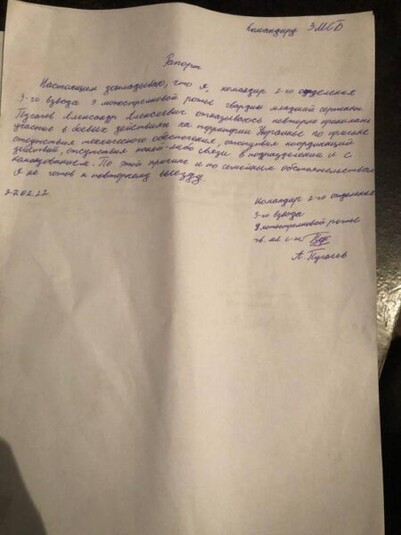 Командиру 3МСБ
Рапорт
Настоящим докладываю, что я, командир 2-го отделения
3-го взвода 9 мотострелковой роты гвардии младший сержант
Александр Алексеевич отказываюсь повторно принимать
участие в боевых действиях на территории Украины по причине
отсутствия технического обеспечения, отсутствия координаций
действий, отсутствия какой-либо связи в подразделении и с
командованием. По этой причине и по семейным обстоятельствам
я не готов к повторному выезду.
Командир 2-го отделения
3-го взвода
9 мотострелковой роты
гв. мл. с-т
А.